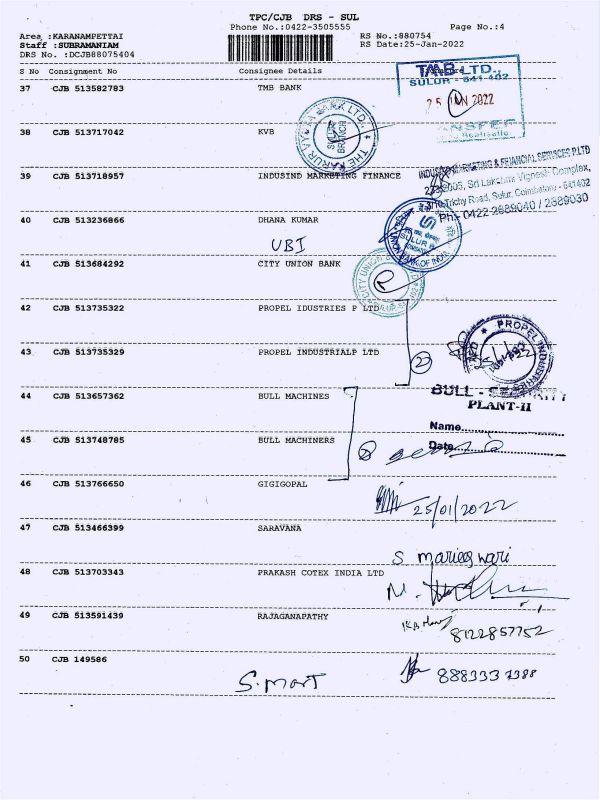 TPC/CJB DRS - SUL
Phone No.:0422-3505555
Page No.:4
Area :KARANAMPETTAI
RS No.:880754
Staff :SUBRAMANIAM
RS Date:25-Jan-2022
DRS No. :DCJB88075404
S No Consignment No Consignee Details
37 CJB 513582783 TMB BANK
TMB LTD.,
SULUR - 641 402
25 JAN 2022
38 CJB 513717042 KVB
THE KARUR VYSYA BANK LTD.
SULUR BRANCH
39 CJB 513718957 INDUSIND MARKETING FINANCE
INDUSIND MARKETING & FINANCIAL SERVICES P.LTD
Sri Lakshmi Vignesh Complex,
Trichy Road, Sulur, Coimbatore - 641402
Ph:- 0422 2689040 / 2689030
40 CJB 513236866 DHANA KUMAR
UBI
UNION BANK OF INDIA
SULUR
41 CJB 513684292 CITY UNION BANK
CITY UNION
42 CJB 513735322 PROPEL IDUSTRIES P LTD
43 CJB 513735329 PROPEL INDUSTRIALP LTD
2
PROPEL INDUSTRIES
44 CJB 513657362 BULL MACHINES
BULL - SECURITY
PLANT-II
Name
Date
45 CJB 513748785 BULL MACHINERS
46 CJB 513766650 GIGIGOPAL
25/01/2022
47 CJB 513466399 SARAVANA
S marieswari
48 CJB 513703343 PRAKASH COTEX INDIA LTD
49 CJB 513591439 RAJAGANAPATHY
8122857752
50 CJB 149586
S.mart
888333 7388